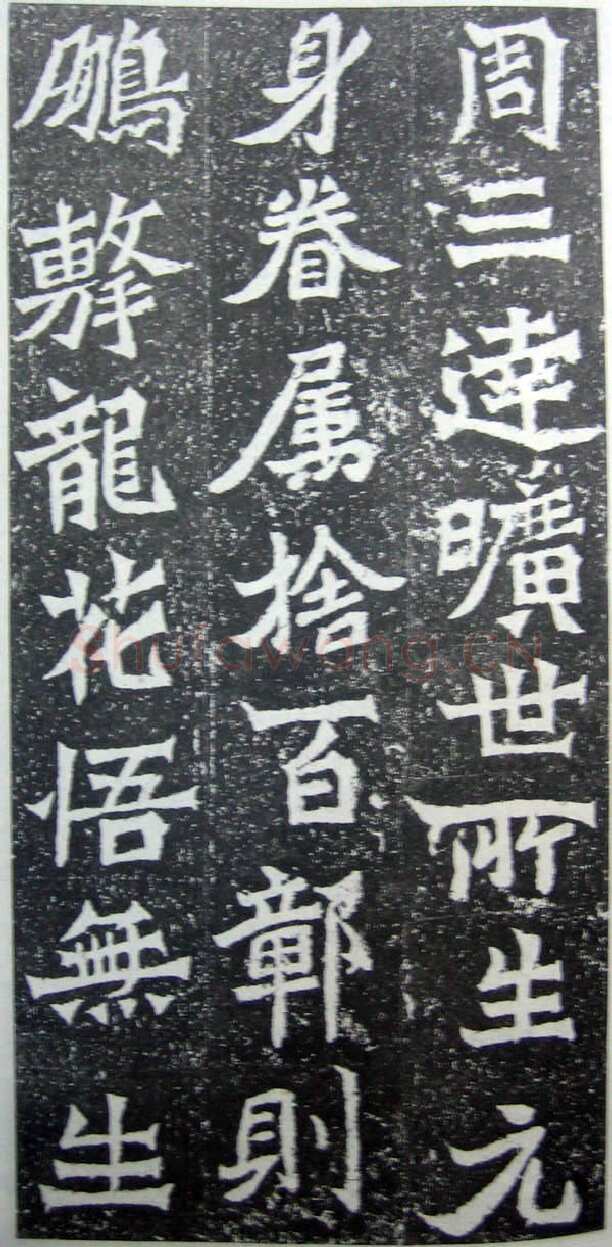 周三逹曠世所生元
身眷属捨百鄣則
鵬擊龍花悟無生
Shufawang.CN